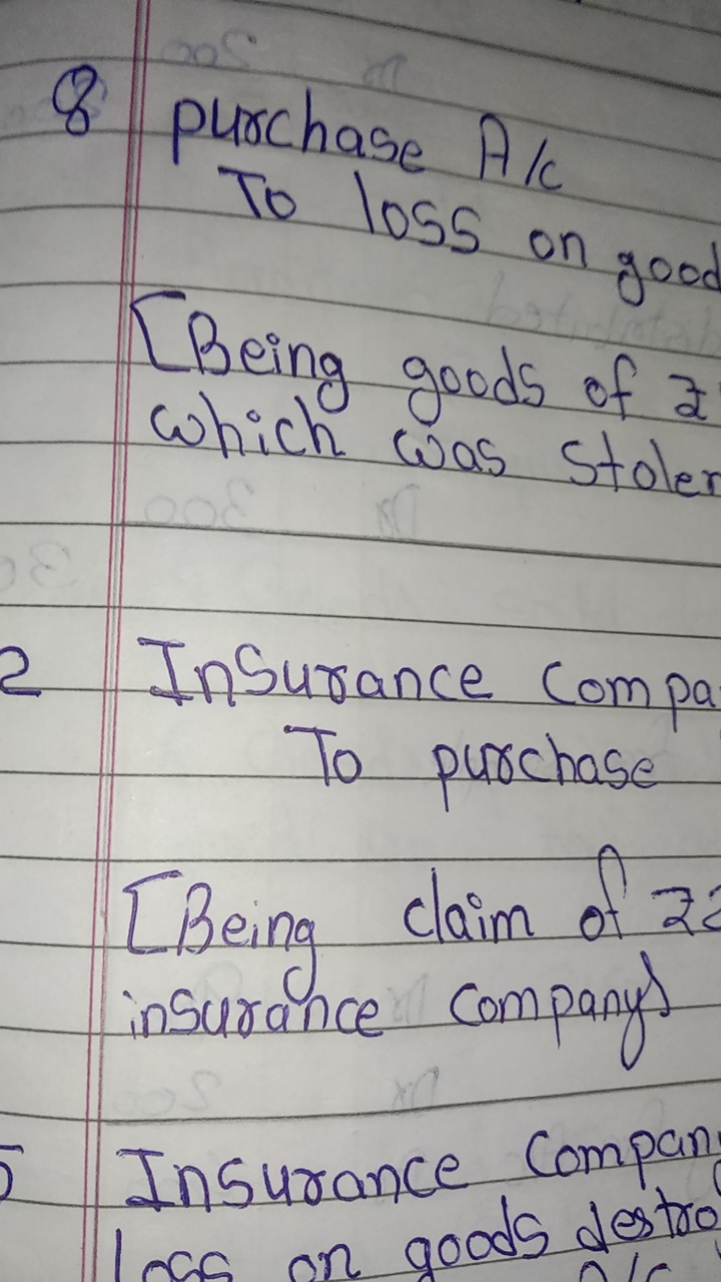 8 purchase A/c
To loss on good
[Being goods of ₹
which was stolen
2 Insurance Compa
To purchase
[Being claim of ₹2
insurance company)
5 Insurance Company
loss on goods destro
A/c